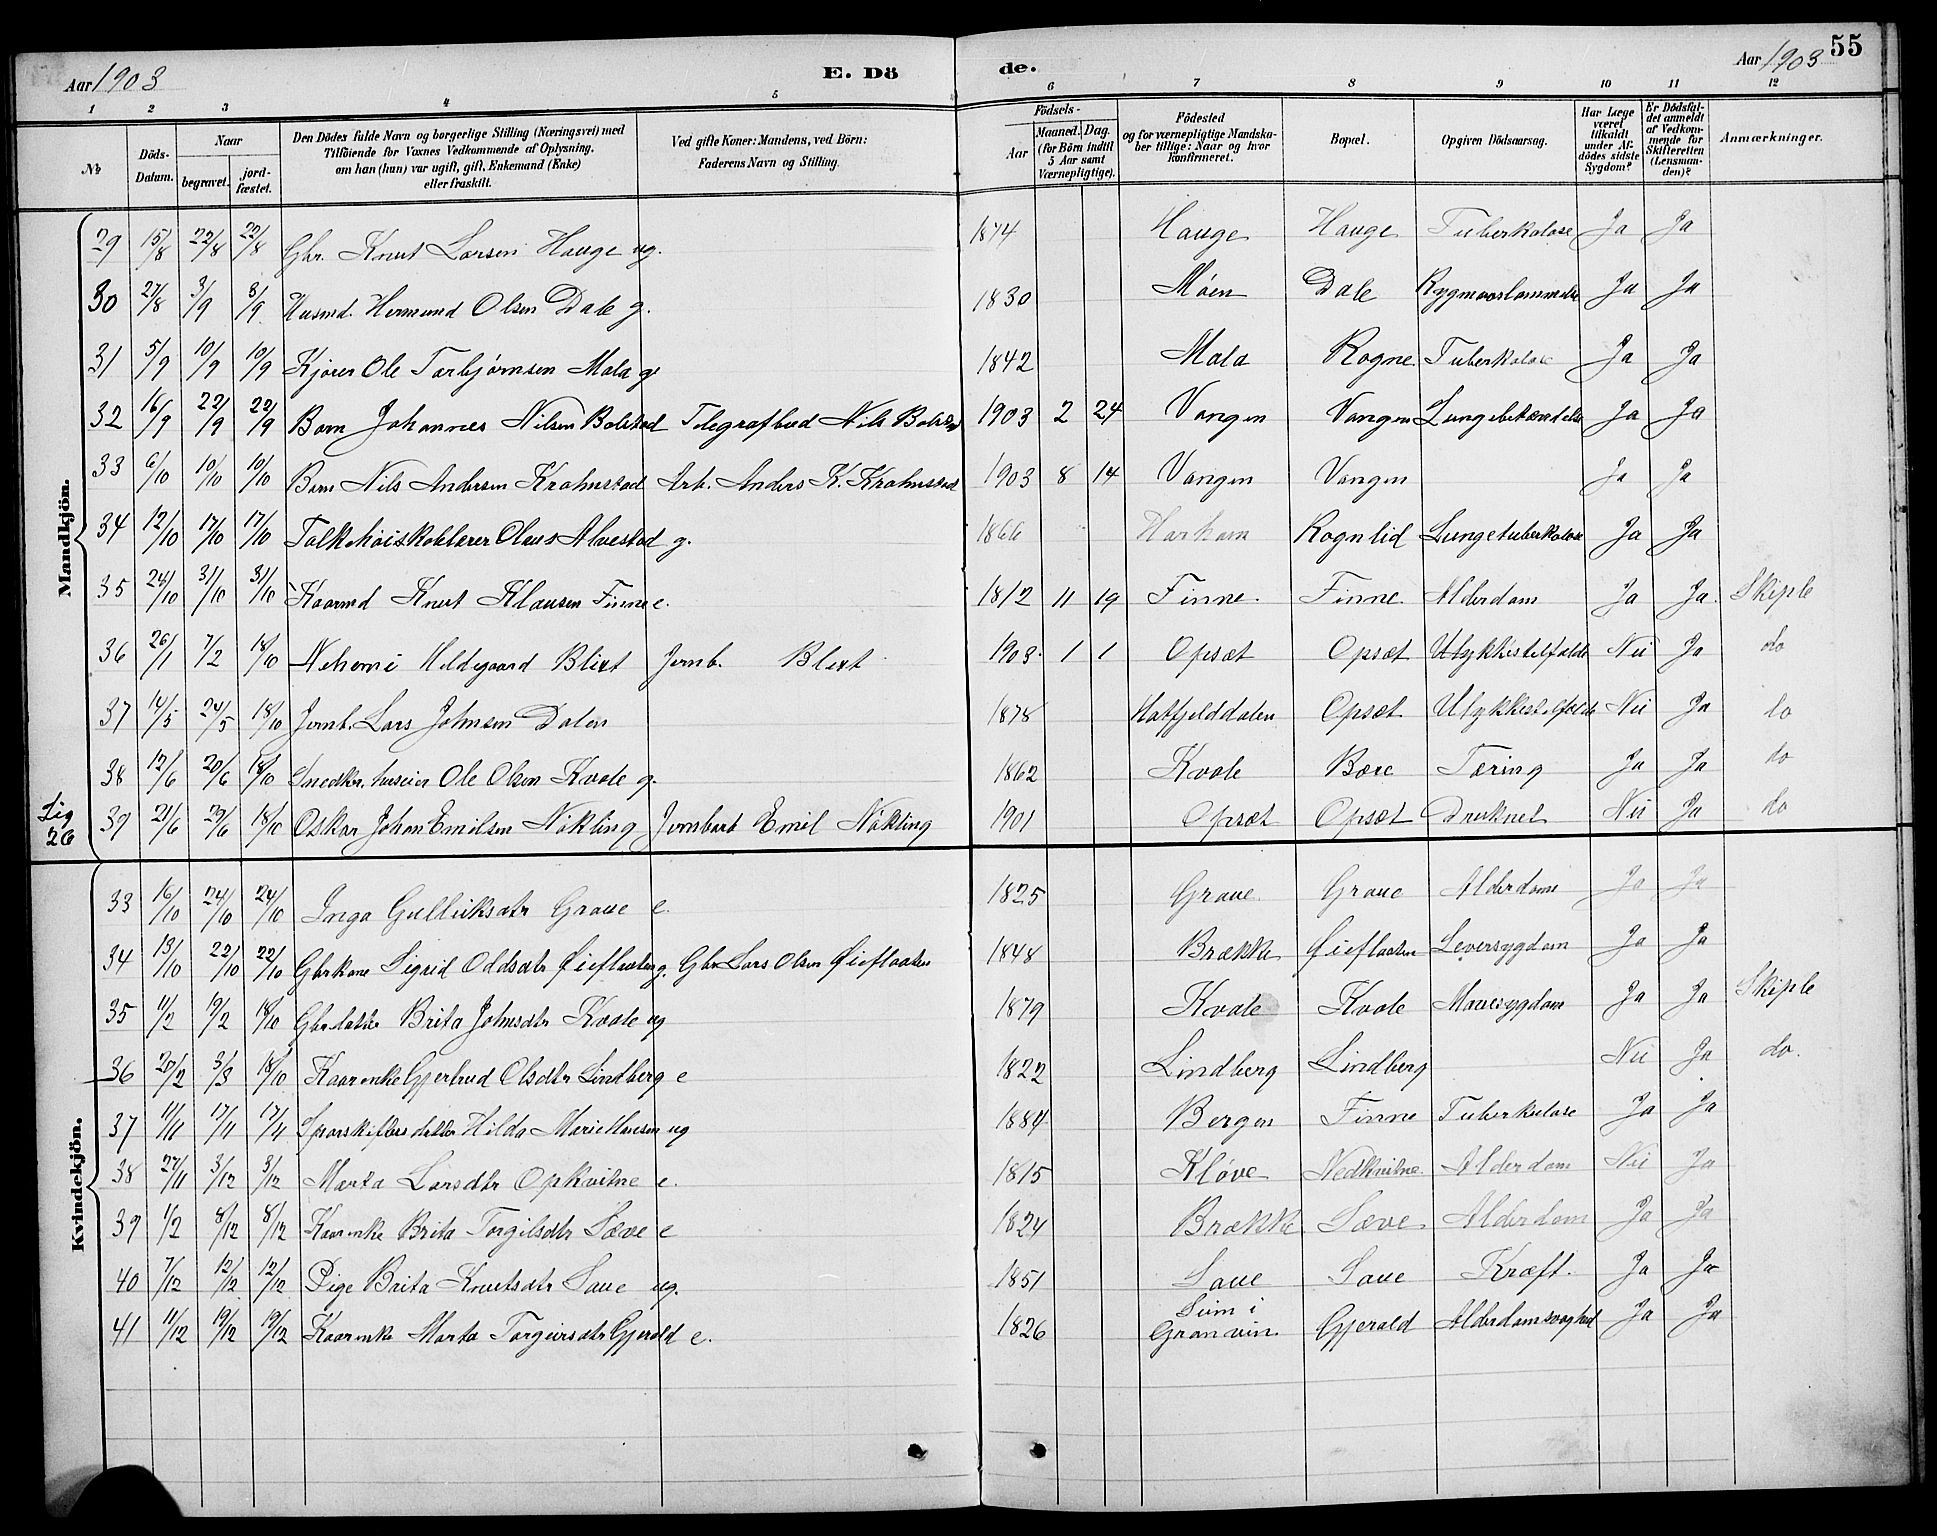 Aar 1903
E. Dö
de.
Aar 1903
55
1 2 3 4 5 6 7 8 9 10 11 12
№ Döds-Datum. Naar begravet. jord-fæstet. Den Dödes fulde Navn og borgerlige Stilling (Næringsvei) med Tilföiende for Voxnes Vedkommende af Oplysning, om han (hun) var ugift, gift, Enkemand (Enke) eller fraskilt. Ved gifte Koner: Mandens, ved Börn: Faderens Navn og Stilling. Födsels- Aar Maaned. Dag. (for Börn indtil 5 Aar samt Værnepligtige). Födested og for værnepligtige Mandskaber tillige: Naar og hvor konfirmeret. Bopæl. Opgiven Dödsaarsag. Har Læge været tilkaldt under Afdödes sidste Sygdom? Er Dödsfaldet anmeldt af Vedkommende for Skifteretten (Lensmanden)? Anmærkninger.
Mandkjön.
29 15/8 22/8 22/8 Gbr. Knut Larsen Hauge ug. 1874 Hauge Hauge Tuberkulose Ja Ja
30 27/8 3/9 3/9 Husmd. Hermund Olsen Dale g. 1830 Møen Dale Rygmarslammelse Ja Ja
31 5/9 10/9 10/9 Kjører Ole Torbjørnsen Mala g 1842 Mala Rogne Tuberkulose Ja Ja
32 16/9 22/9 22/9 Barn Johannes Nilsen Bolstad Telegrafbud Nils Bolstad 1903 2 24 Vangen Vangen Lungebetændelse Ja Ja
33 6/10 10/10 10/10 Barn Nils Andersen Krohnstad Arb. Anders K. Krohnstad 1903 8 14 Vangen Vangen Ja Ja
34 12/10 17/10 17/10 Folkehøiskolelærer Olaus Alvestad g. 1866 Rognlid Lungetuberkulose Ja Ja
35 24/10 31/10 31/10 Kaarmd Knut Klausen Finne e. 1812 11 19 Finne Finne Alderdom Ja Ja. Skiple
36 26/1 7/2 18/10 Nehemi Hildegaard Blixt Jernb. Blixt 1903 1 1 Opsæt Opsæt Ulykkestilfælde Nei Ja do
37 14/5 24/5 18/10 Jernb. Lars Johnsen Dalen 1878 Hatfjelddalen Opsæt Ulykkestilfælde Nei Ja do
38 12/6 20/6 18/10 Snedker, huseier Ole Olsen Kvale g. 1862 Kvale Bøe Tæring Ja Ja do
Lig 26
39 21/6 29/6 18/10 Oskar Johan Emilsen Näkling Jernbarb Emil Näkling 1901 Opsæt Opsæt Druknet Nei Ja do
Kvindekjön.
33 16/10 24/10 24/10 Inga Gulleiksdtr Graue e. 1825 Graue Graue Alderdom Ja Ja
34 13/10 22/10 22/10 Gbrkone Sigrid Oddsdtr Øieflaaten g. Gbr Lars Olsen Øieflaaten 1848 Brække Øieflaaten Leversygdom Ja Ja
35 11/2 19/2 18/10 Gbr.datter Brita Johnsdtr Kvale ug 1879 Kvale Kvale Mavesygdom Ja Ja Skiple
36 20/2 3/3 18/10 Kaarenke Gjertrud Olsdtr Lindberg e 1822 Lindberg Lindberg Nei Ja do.
37 11/11 17/11 17/11 Sporskifters datter Hilda Marie Hansen ug 1884 Bergen Finne Tuberkulose Ja Ja
38 27/11 3/12 3/12 Marta Larsdtr Opkvitne e. 1815 Kløve Nedkvitne Alderdom Nei Ja
39 1/2 8/12 8/12 Kaarenke Brita Torgilsdtr Sæve e 1824 Brække Sæve Alderdom Ja Ja
40 7/12 12/12 12/12 Pige Brita Knutsdtr Saue ug. 1851 Saue Saue Kræft. Ja Ja
41 11/12 19/12 19/12 Kaarenke Marta Torgeirsdtr Gjerald e. 1826 Seim i Granvin Gjerald Alderdomssvaghed Ja Ja